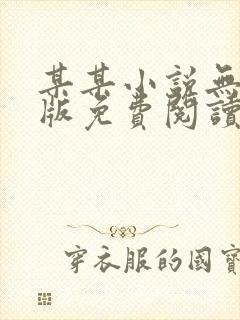 某某小說無
版免費閱讀
穿衣服的國寶